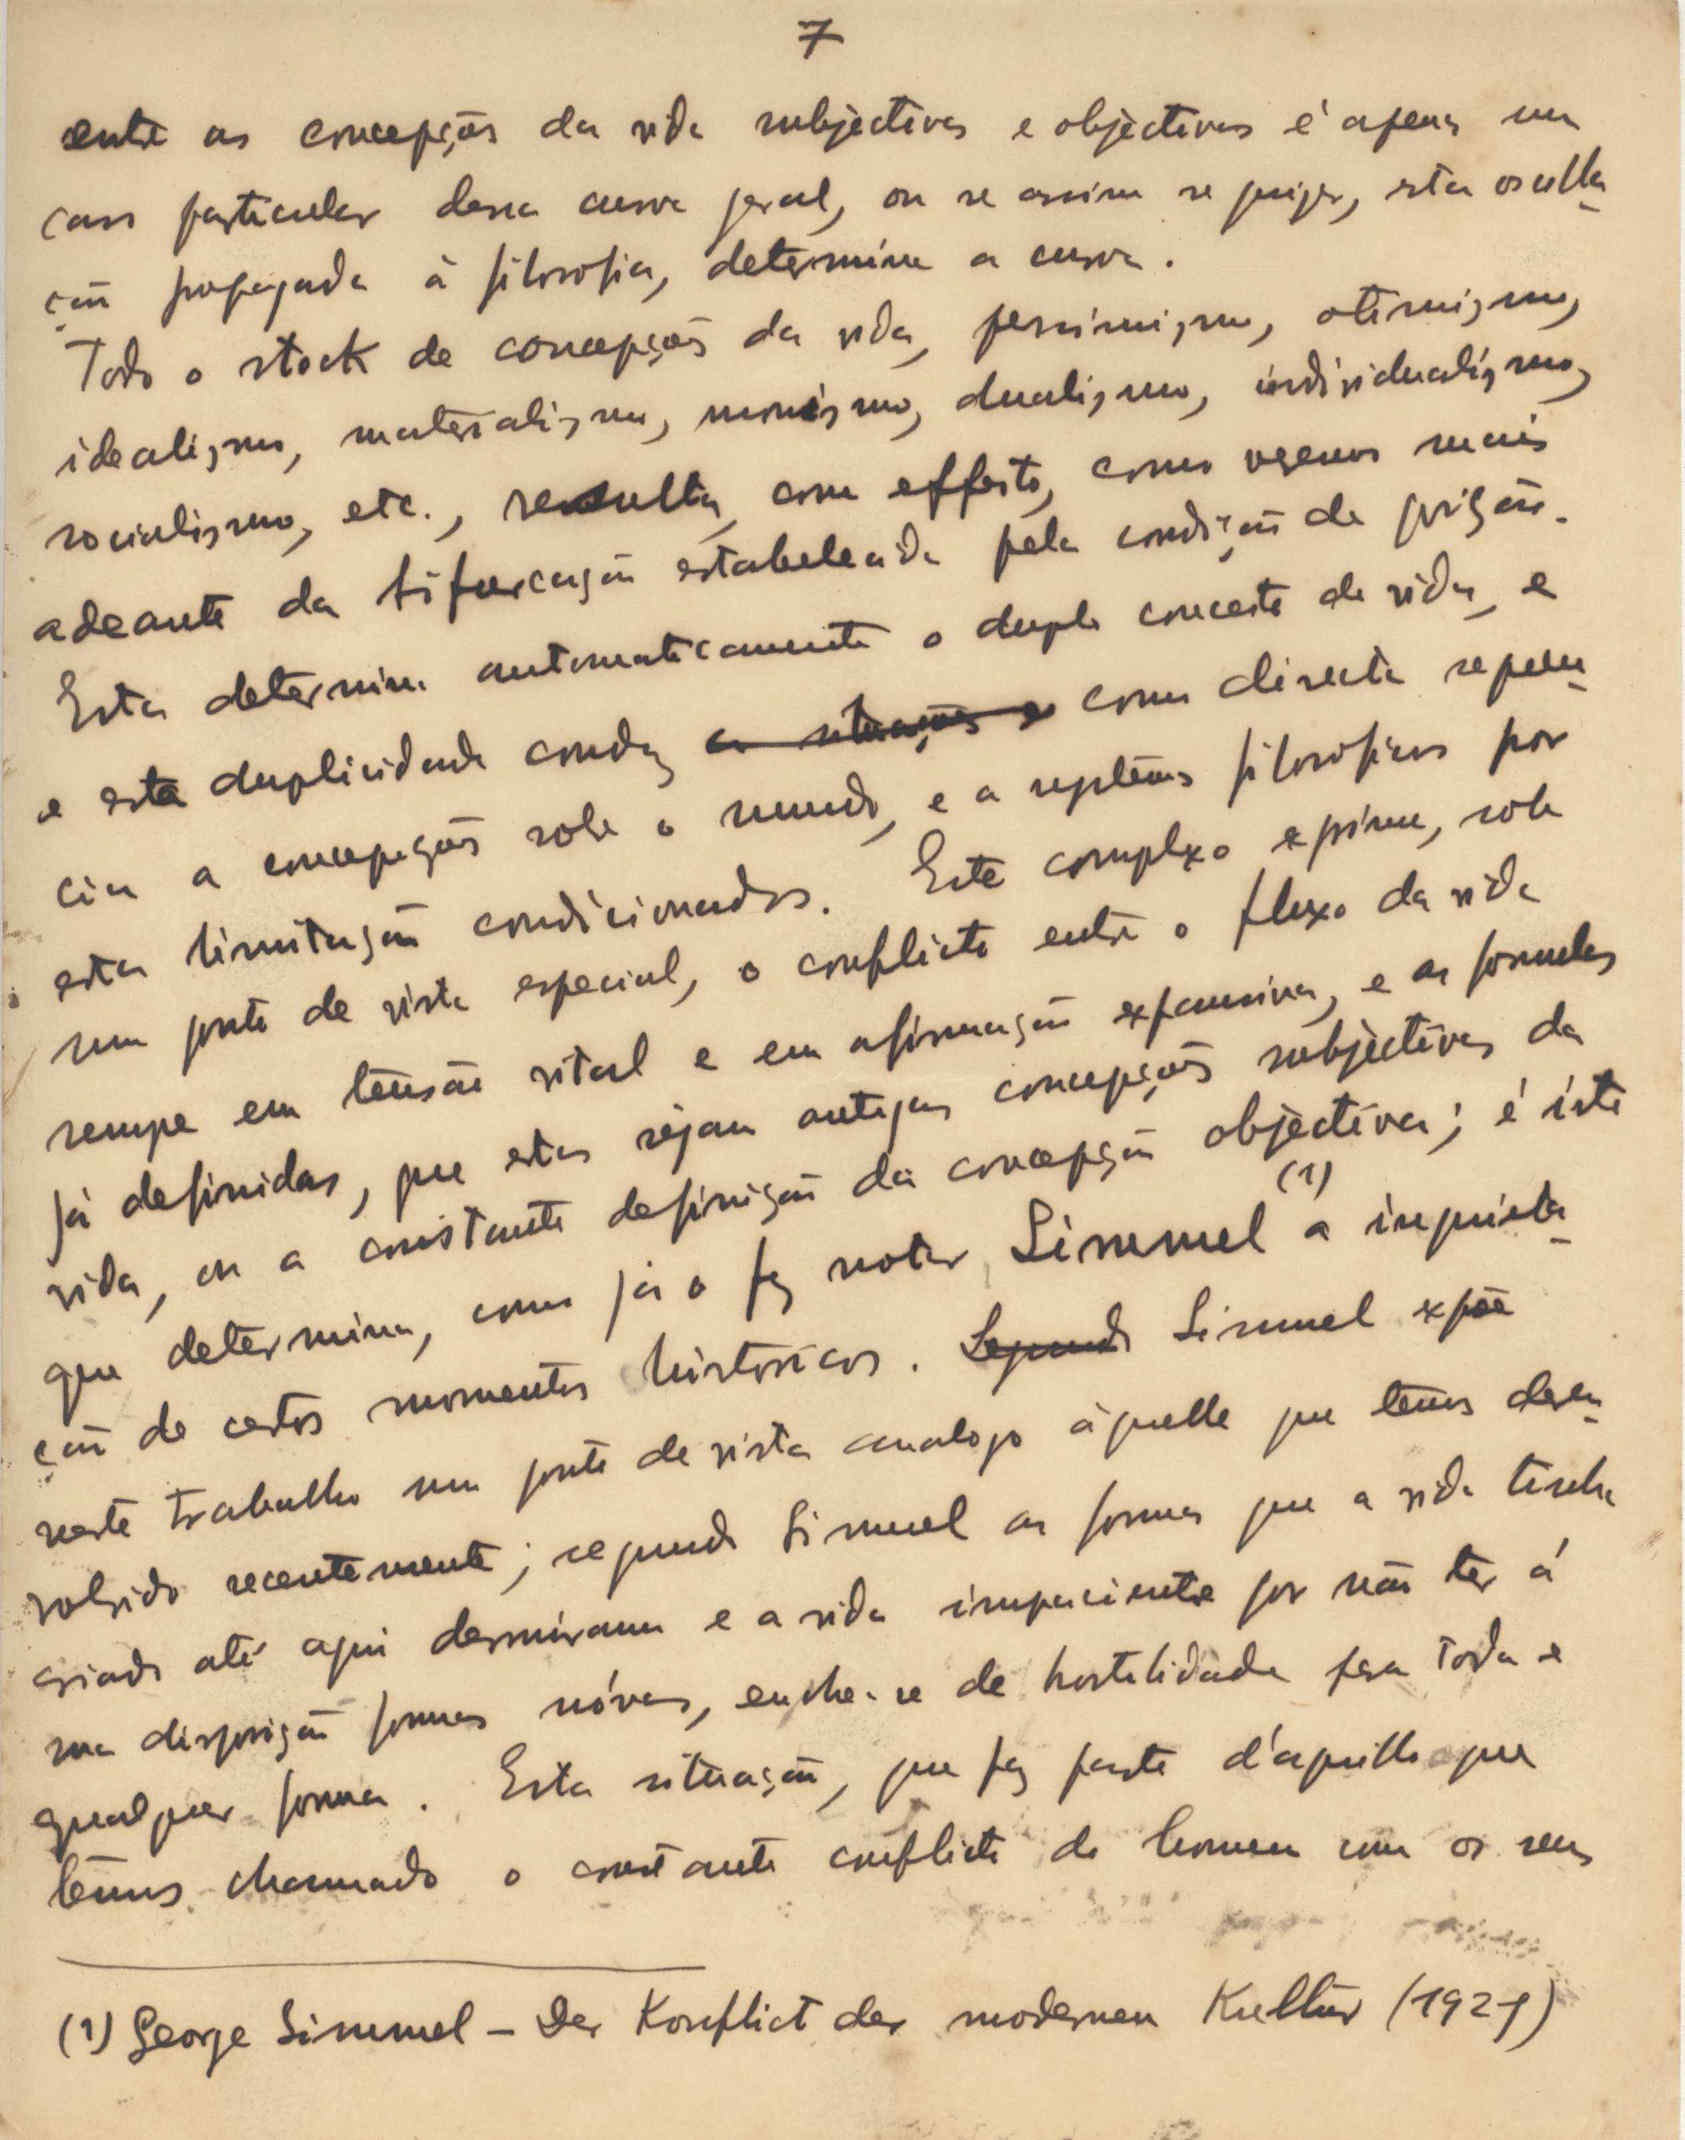 7
entre as concepções da vida subjectivas e objectivas é apenas um
caso particular dessa curva geral, ou se assim se quizer, esta oscilla-
ção propagada à filosofia, determina a curva.
Todo o stock de concepções da vida, pessimismo, otimismo,
idealismo, materialismo, monismo, dualismo, individualismo,
socialismo, etc., resulta, com effeito, como veremos mais
adeante da bifurcação estabelecida pela condição de prisão.
Esta determina automaticamente o duplo conceito de vida, e
e esta duplicidade conduz a situações e como directa repercu-
cia a concepções sobe o mundo, e a systemas filosoficos por
esta limitação condicionados. Este complexo exprime, sob
um ponto de vista especial, o conflicto entre o fluxo da vida
sempre em tensão vital e em afirmação expansiva, e as formulas
já definidas, que estas sejam antigas concepções subjectivas da
vida, ou a constante definição da concepção objectiva; é isto
que determina, como já o fez notar, Simmel (1) a inquieta-
ção de certos momentos historicos. Segundo Simmel expõe
neste trabalho um ponto de vista analogo àquelle que temos desen-
volvido recentemente; segundo Simmel as formas que a vida tinha
criado até aqui dominavam e a vida impaciente por não ter á
sua disposição formas nóvas, enche-se de hostilidade para toda e
qualquer forma. Esta situação, que faz parte d'aquillo que
temos chamado o constante conflicto do homem com os seus
(1) George Simmel – Der Konflict der modernen Kultur (1921)